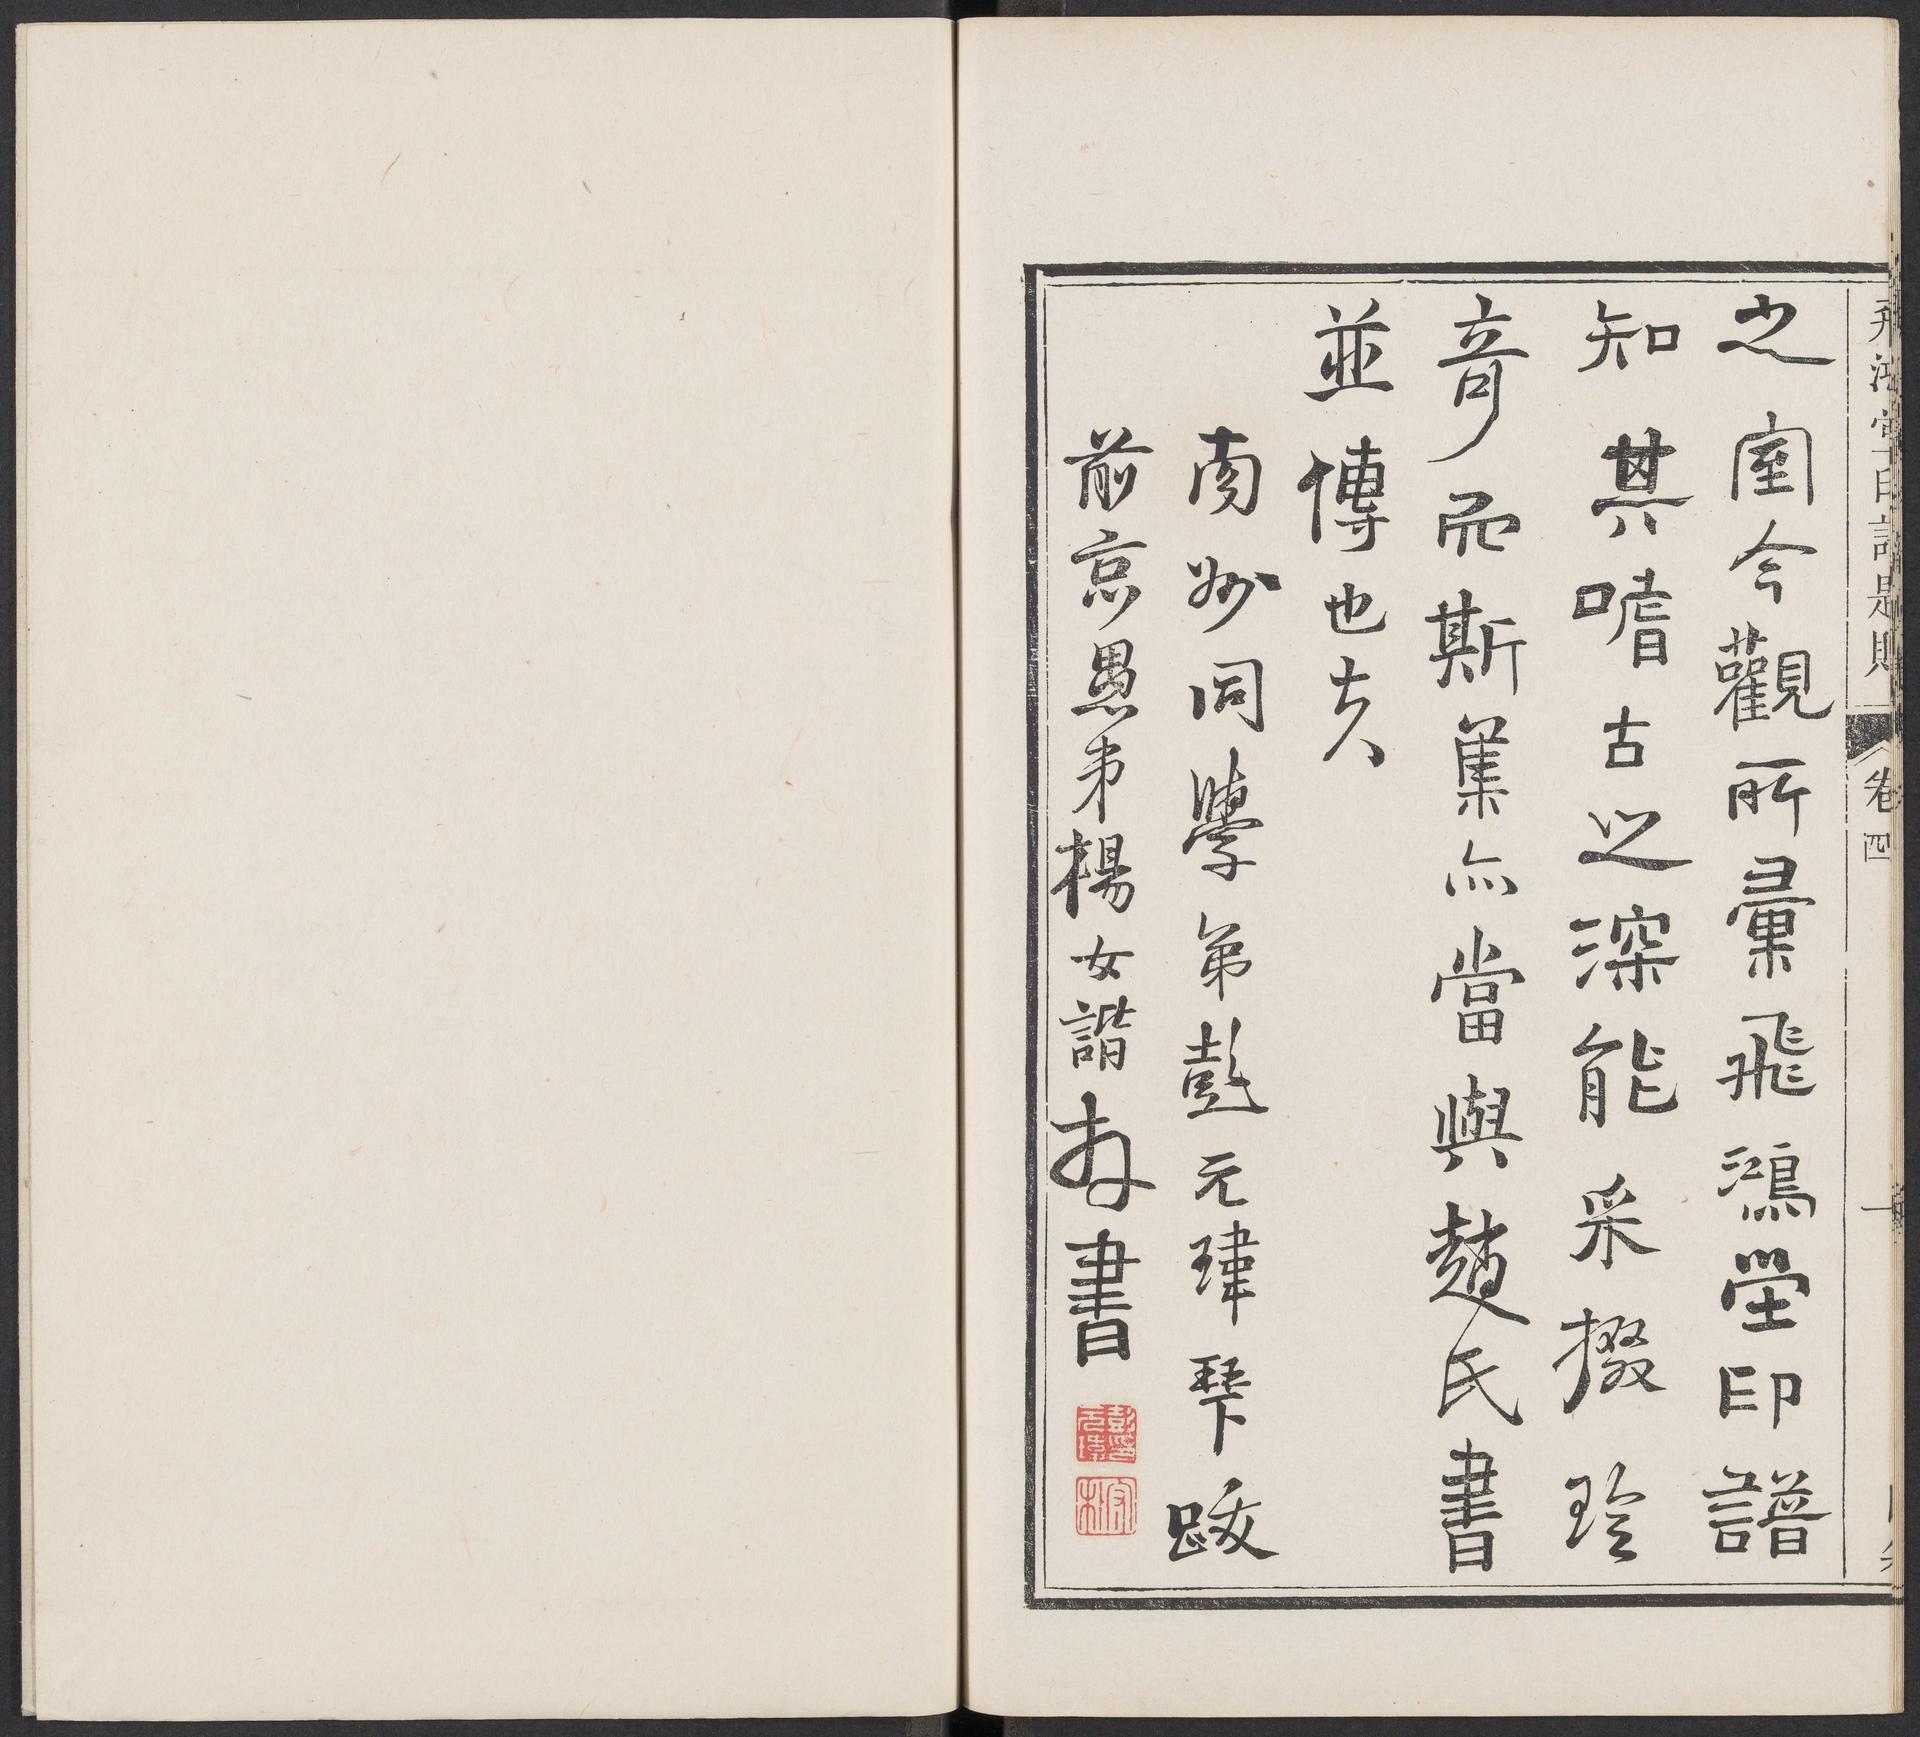 之室今觀所彙飛鴻堂印譜
知其嗜古之深能采掇珍
奇而斯集亦當與趙氏書
並傳也夫
南州同學弟彭元瑋琴跋
前京愚弟楊女諧拜書
卷四